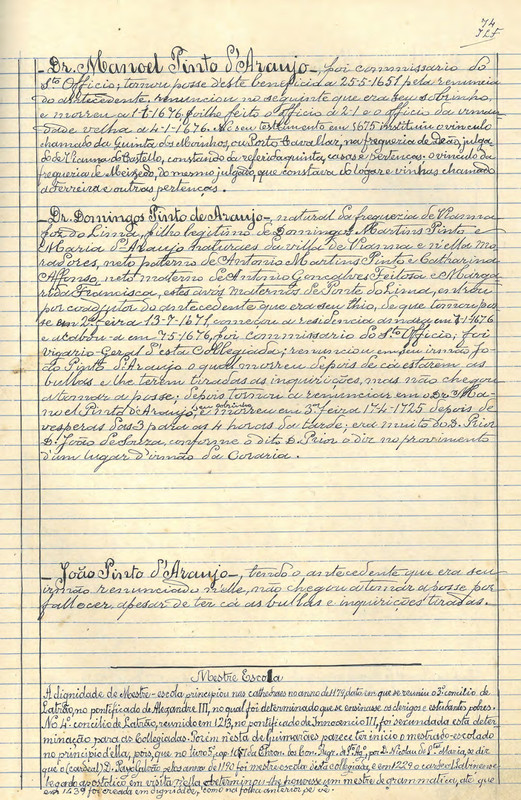 74
–Dr. Manoel Pinto d'Araujo–, foi commissario do
Sto Officio; tomou posse d'este beneficio a 25-5-1651 pela renuncia
do antecedente, renunciou no seguinte que era seu sobrinho,
e morreu a 1-1-1676, foi-lhe feito o officio a 2-1 e o officio da irman
dade velha a 4-1-1676. No seu testamento em instituiu o vinculo
chamado da Quinta dos Morinhos, ou Porto Cavallar, na freguezia de julga
do de Vianna do Castello, constando da referida quinta, casas e pertenças; o vinculo da
freguezia de Meixedo, do mesmo julgado, que constava do logar e vinhas chamado
a Torreira e outras pertenças.
–Dr. Domingos Pinto de Araujo–, natural da freguezia de Vianna
foz do Lima, filho legitimo de Domingos Martins Pinto e
Maria d'Araujo naturaes da villa de Vianna e n'ella mo
radores, neto paterno de Antonio Martins Pinto e Catharina
Affonso, neto materno de Antonio Gonçalves Feitosa e Marga
rida Francisca, estes avós maternos de Ponte do Lima, entrou
por coadjutor do antecedente que era seu thio, de que tomou pos
se em 2ª feira 13-7-1671, começou a residencia amara em 1-1-1676
e acabou-a em 7-5-1676, foi commissario do Sto Officio, foi
vigario Geral d'esta Collegiada; renunciou em seu irmão Jo
ão Pinto d'Araujo o qual morreu depois de cá estarem as
bullas e lhe terem tiradas as inquirições, mas não chegou
a tomar a posse; depois tornou a renunciar em o Dr. Ma-
noel Pinto d'Araujo seu sobrinho e morreu em 3ª feira 17-4-1725 depois de
vesperas das 3 para as 4 horas da tarde; era muito do D. Prior
D. João de Souza, conforme o dito D. Prior o diz no provimento
d'um lugar d'irmão da Coraria.
–João Pinto d'Araujo–, tendo o antecedente que era seu
irmão renunciado n'elle, não chegou a tomar a posse por
fallecer, apesar de ter cá as bullas e inquirições tiradas.
Mestre Escola
A dignidade de Mestre-escola principiou nas cathedraes no anno de 1179, data em que se reuniu o 3º concilio de
Latrão, no pontificado de Alexandre III, no qual foi determinado que se ensinasse os clerigos e estudantes pobres.
No 4º concilio de Latrão, reunido em 1213, no pontificado de Innocencio III, foi secundada esta deter
minação para as Collegiadas. Porem n'esta de Guimarães parece ter inicio o mestrado-escolado
no principio d'ella, pois, que no livro 5, cap. da Chron. dos Con. Regr. de Sto Agº, por D. Nicolau de Sta Maria, se diz
que o (cardeal) D. Payo Galvão pelos annos de 1190 foi mestre escola d'esta collegiada, e em 1229 o cardeal Sabinense
legado apostolico em visita n'ella determinou-lhe houvesse um mestre de grammatica, até que
em 1439 foi creada em dignidade, como na folha anterior se vê.